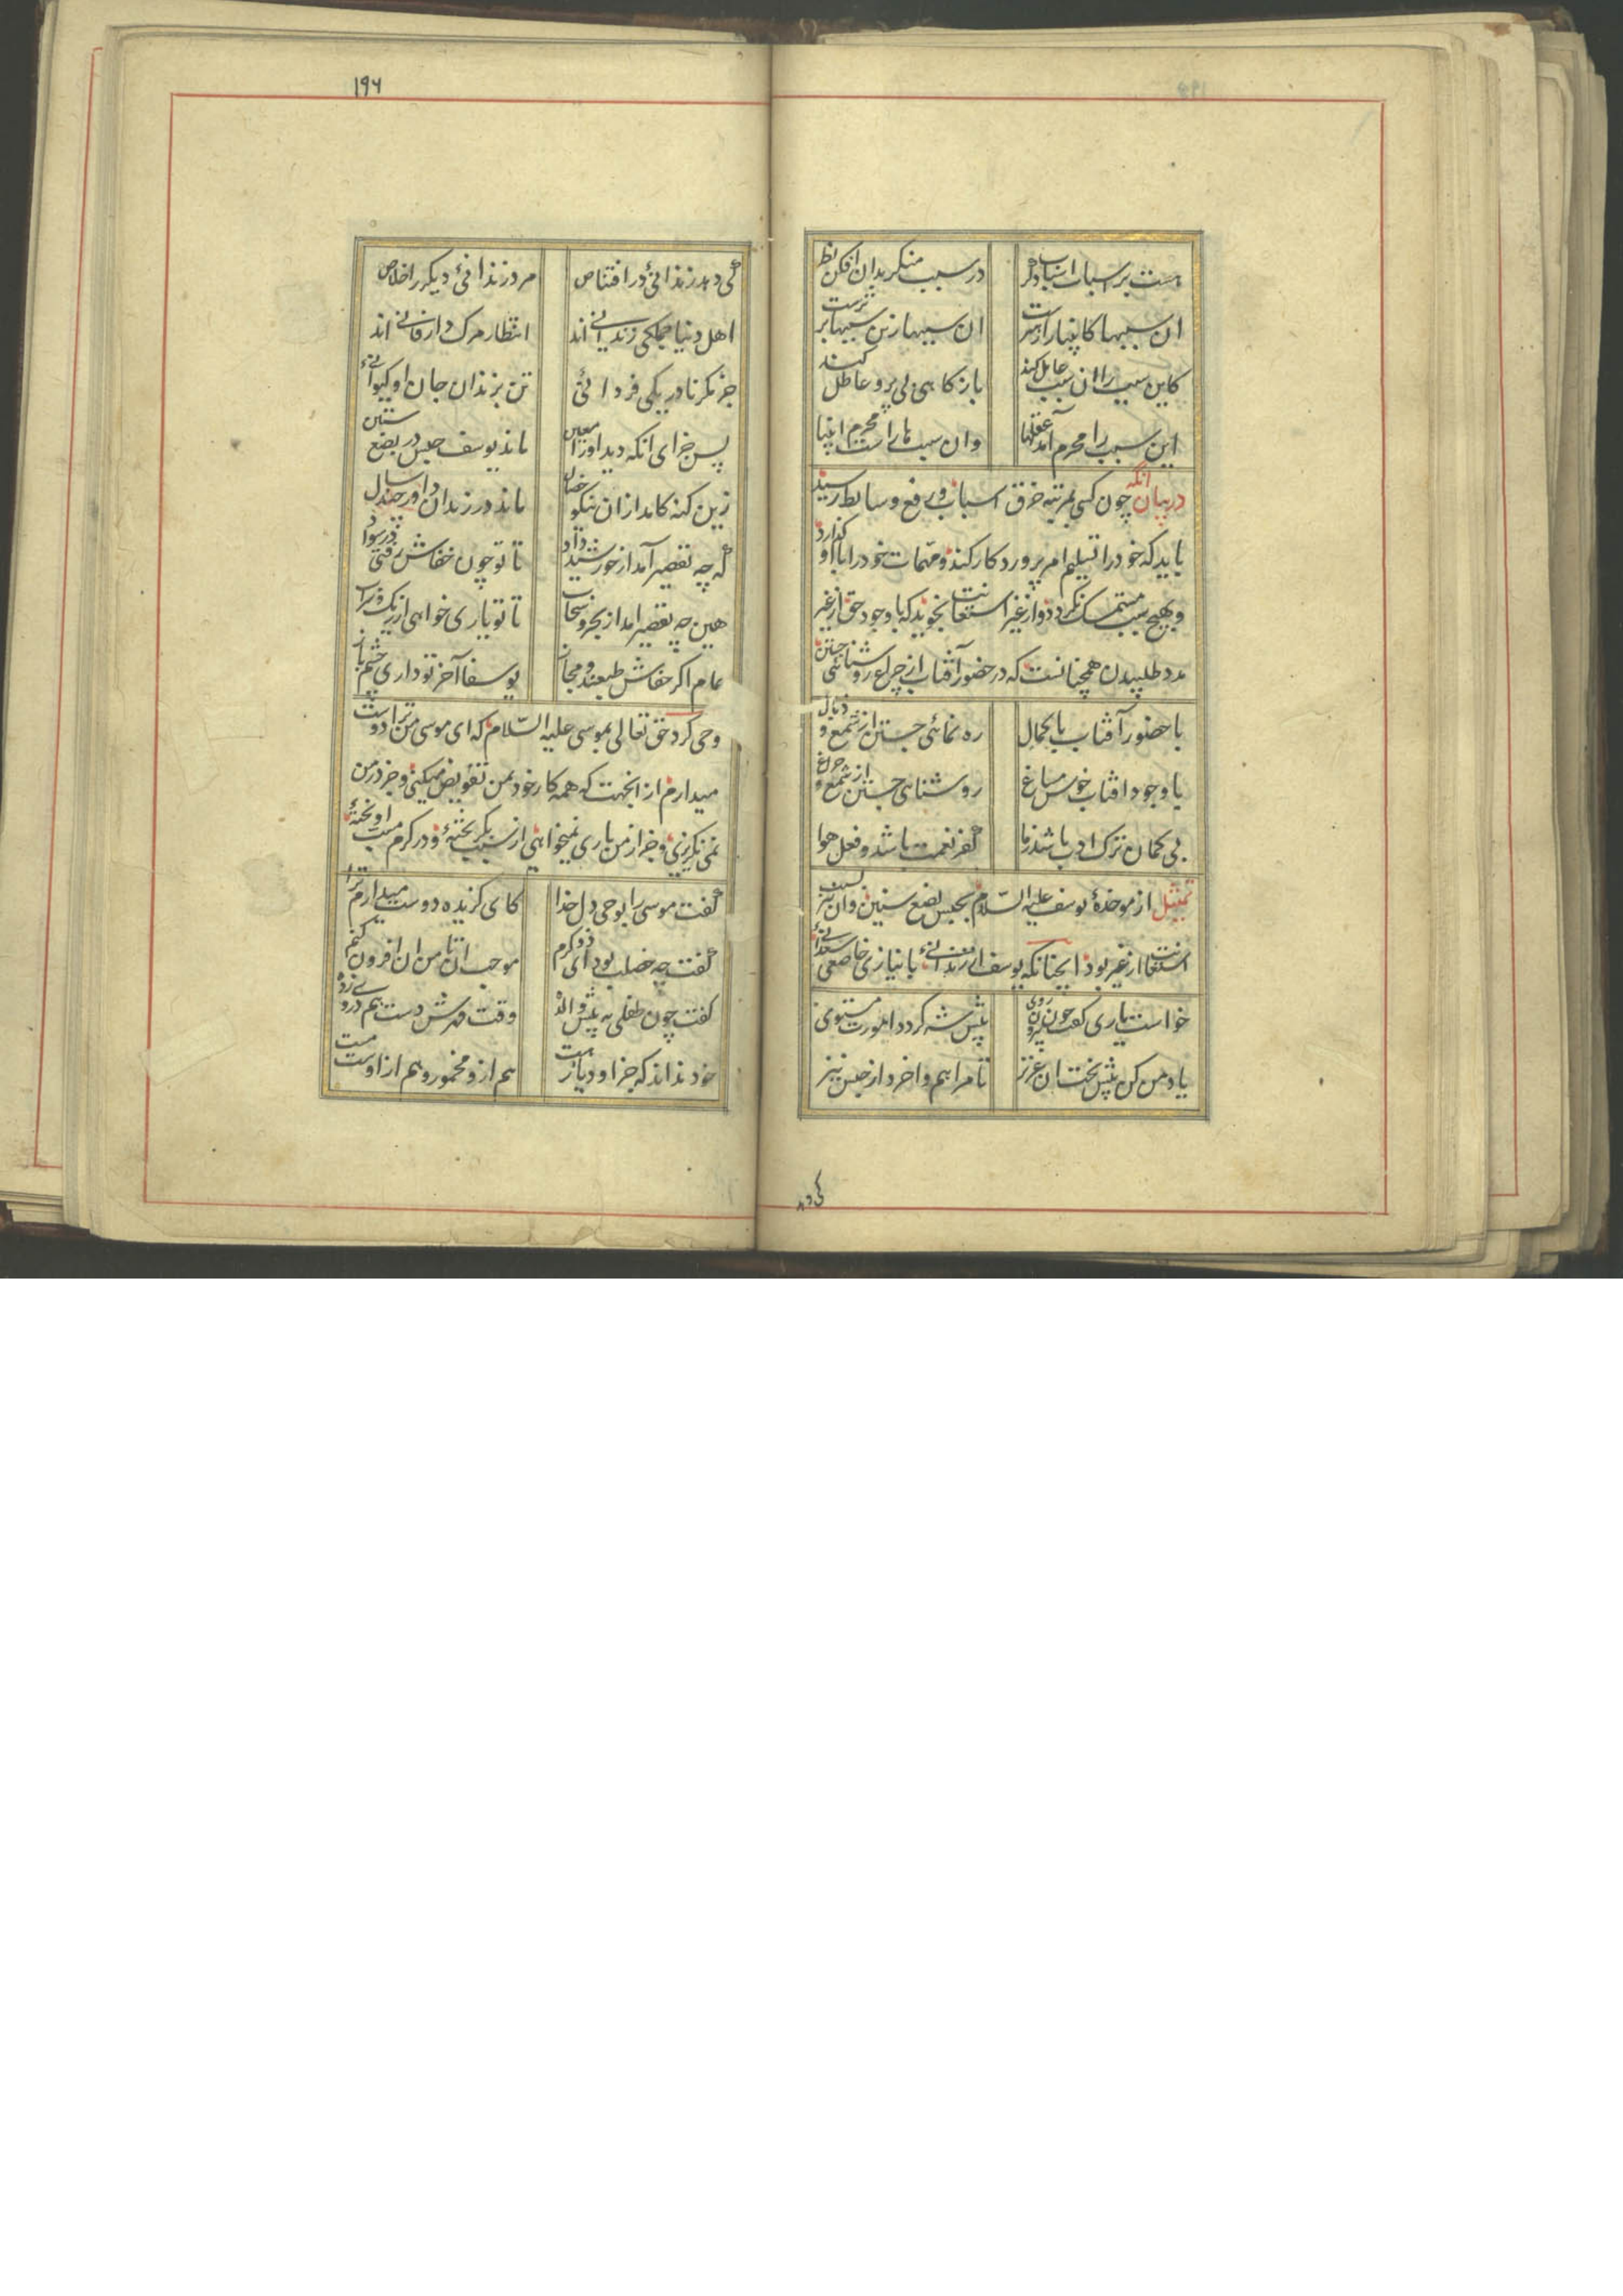 هست بر اسباب اسباب دگر
در سبب منگر بدان افکن نظر
ان سببها کانبیا را رهبرست
ان سببها زین سببها برترست
کاین سبب را ان سبب عامل کند
باز گاهی بی پر و عاطل کند
این سبب را محرم آمد عقلها
وان سببها راست محرم انبیا
در بیان انکه چون کسی بمرتبه خرق اسباب و رفع وسایط رسید
باید که خود را تسلیم امر پروردکار کند و مهمات خود را باو کذارد
و بهیچ سبب متمسک نکردد و از غیر استعانت نجوید که با وجود حق از غیر
مدد طلبیدن همچنانست که در حضور آفتاب از چراغ روشنائی جستن
با حضور آفتاب با کمال
ره نمائی جستن از شمع و ذبال
با وجود افتاب خوش مساغ
روشنائی جستن از شمع و چراغ
بی کمان ترک ادب باشد ز ما
کفر نعمت باشد و فعل هوا
تمثیل از موخذهٔ یوسف علیه السّلام بحبس بضع سنین وان نیز بسبب
استعانت از غیر بود
انچنانکه یوسف از زندانئ
با نیازی خاضعی سعدانئ
خواست یاری کفت چون بیرون روی
پیش شه کردد امورت مستوی
یاد من کن پیش تخت ان عزیز
تا مرا هم واخرد از حبس نیز
کی دهد
۱۹۶
کی دهد زندانئ در اقتناص
مرد زندانئ دیکر را خلاص
اهل دنیا جملکی زندانی اند
انتظار مرک دار فانی اند
جز مکر نادر یکی فردانئ
تن بزندان جان او کیوانئ
پس جزای انکه دید او را معین
ماند یوسف حبس در بضع سنین
زین کنه کامد ازان نیکو خصال
ماند در زندان داور چند سال
که چه تقصیر آمد از خورشید داد
تا تو چون خفاش رفتی در سواد
هین چه تقصیر امد از بحر و سحاب
تا تو یاری خواهی از ریک و سراب
عام اکر خفاش طبعند و مجاز
یوسفا آخر تو داری چشم باز
وحی کرد حق تعالی بموسی علیه السّلام که ای موسی من ترا دوست
میدارم از انجهت که همه کار خود بمن تفویض میکنی و جز در من
نمی نکری و جز از من یاری نمیخواهی از سبب بکریختهٔ و در کرم مسبب اویختهٔ
کفت موسی را بوحی دل خدا
کای کزیده دوست میدارم ترا
کفت چه خصلت بود ای ذو کرم
موجب ان تا من ان افزون کنم
کفت چون طفلی به پیش والده
وقت قهرش دست هم در وی زده
خود نداند که جز او دیار هست
هم ازو مخمور و هم از اوست مست